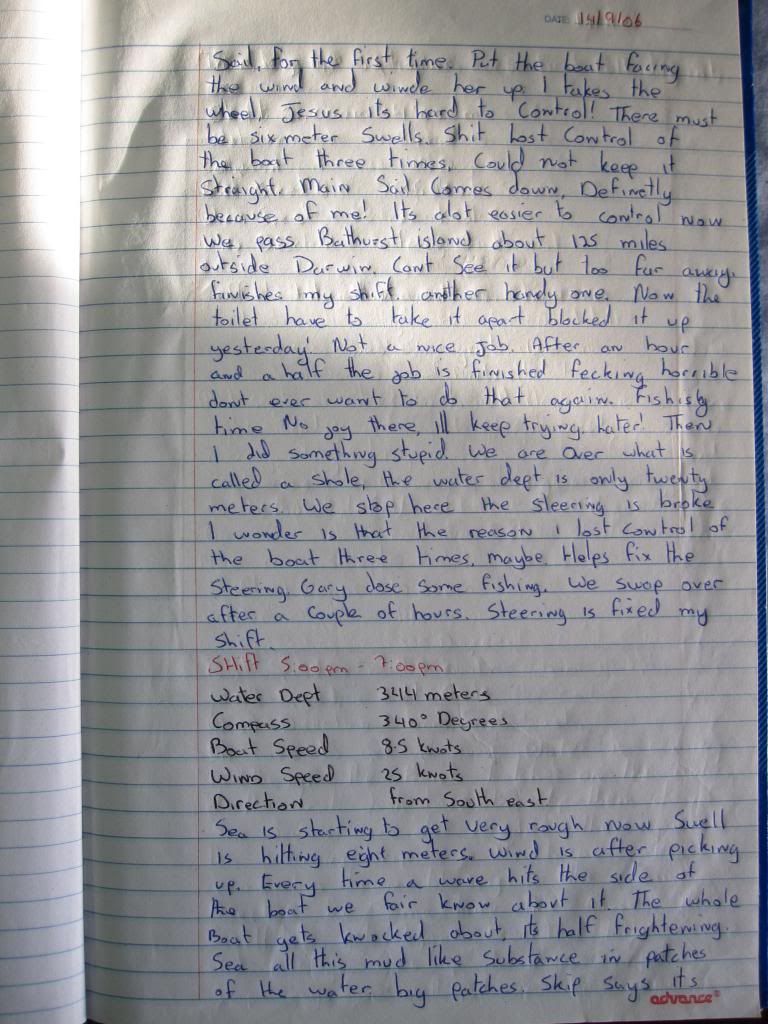 DATE: 14/9/06
Sail, for the first time. Put the boat facing
the wind and winde her up. I takes the
wheel, Jesus its hard to control! There must
be six meter swells. Shit Lost control of
the boat three times, Could not keep it
straight. Main Sail Comes down, Definetly
because of me! Its alot easier to control now
We pass Bathurst island about 125 miles
outside Darwin. Cant See it but too far away.
finishes my shift. another handy one. Now the
toilet have to take it apart blocked it up
yesterday! Not a nice job. After an hour
and a half the job is finished fecking horrible
dont ever want to do that again. Fishisg
time No joy there, ill keep trying. Later! Then
I did something stupid. We are over what is
called a shole, the water dept is only twenty
meters. We stop here the steering is broke
I wonder is that the reason i lost control of
the boat three times, maybe. Helps fix the
Steering. Gary dose some fishing. We swop over
after a couple of hours. Steering is fixed my
shift.
SHift 5:00pm - 7:00pm
Water Dept 344 meters
Compass 340° Degrees
Boat Speed 8.5 knots
Wind Speed 25 knots
Direction from South east
Sea is starting to get very rough now Swell
is hitting eight meters. Wind is after picking
up. Every time a wave hits the side of
the boat we fair know about it. The whole
Boat gets knocked about, its half frightening.
Sea all this mud like substance in patches
of the water, big patches. Skip says its
advance